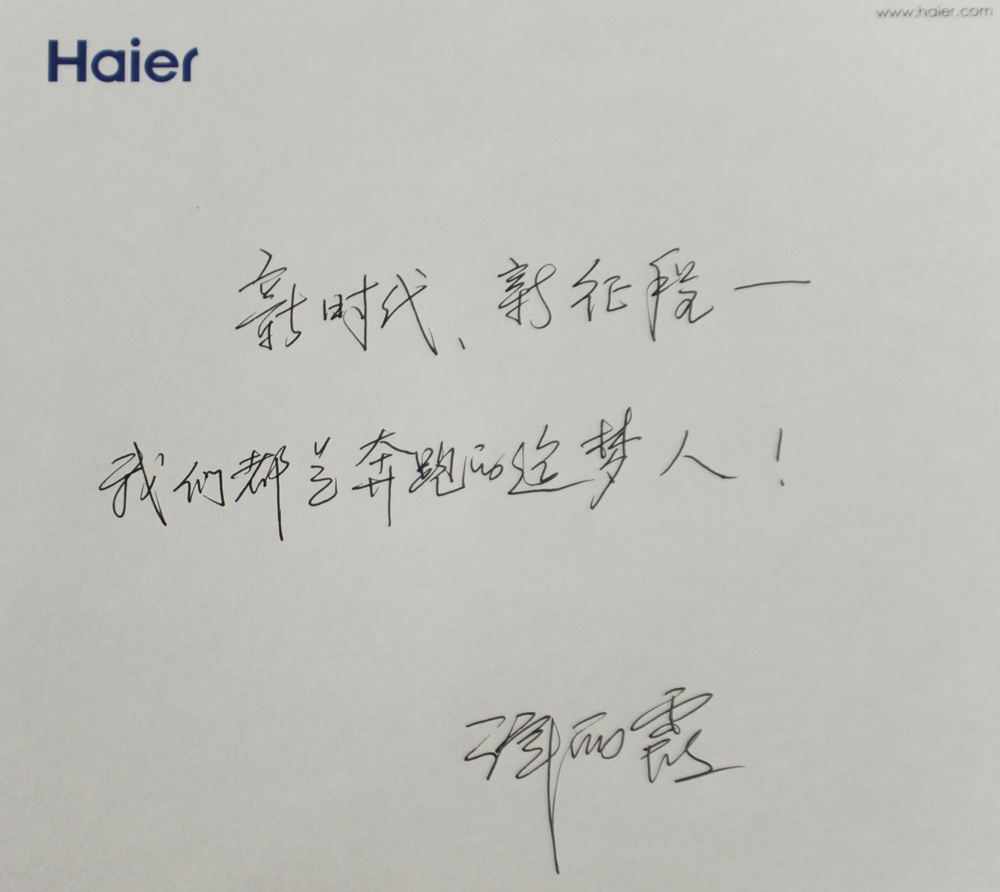 www.haier.com
Haier
新时代、新征程—
我们都是奔跑的追梦人!
丽霞